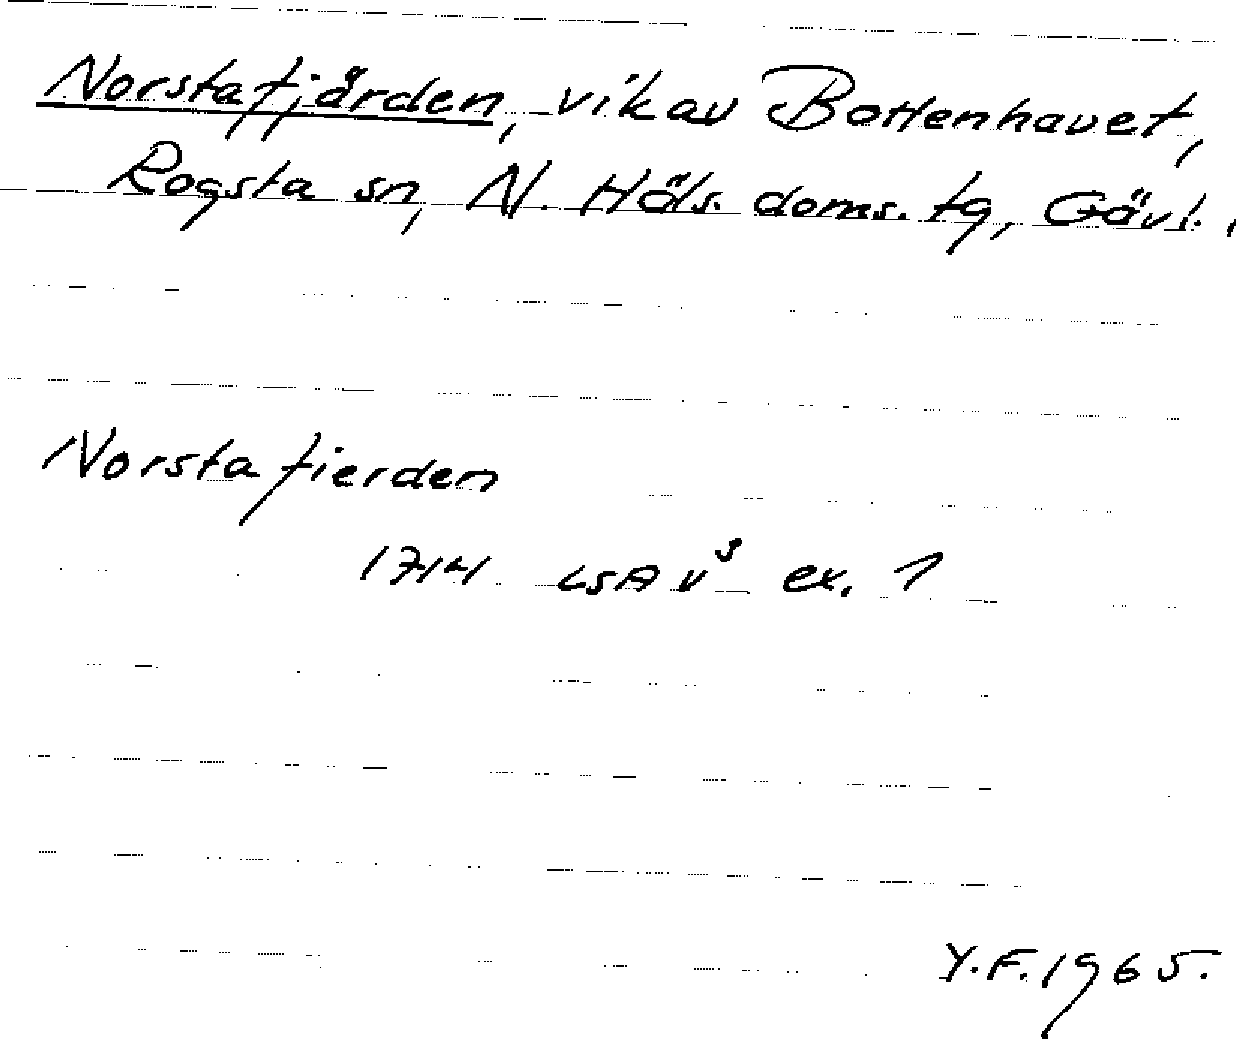 Norstafjärden, vik av Bottenhavet,
Rogsta sn, N. Häls. doms. tg, Gävl. l
Norstafierden
1714 LSA v³ ex. 1
Y.F. 1965.